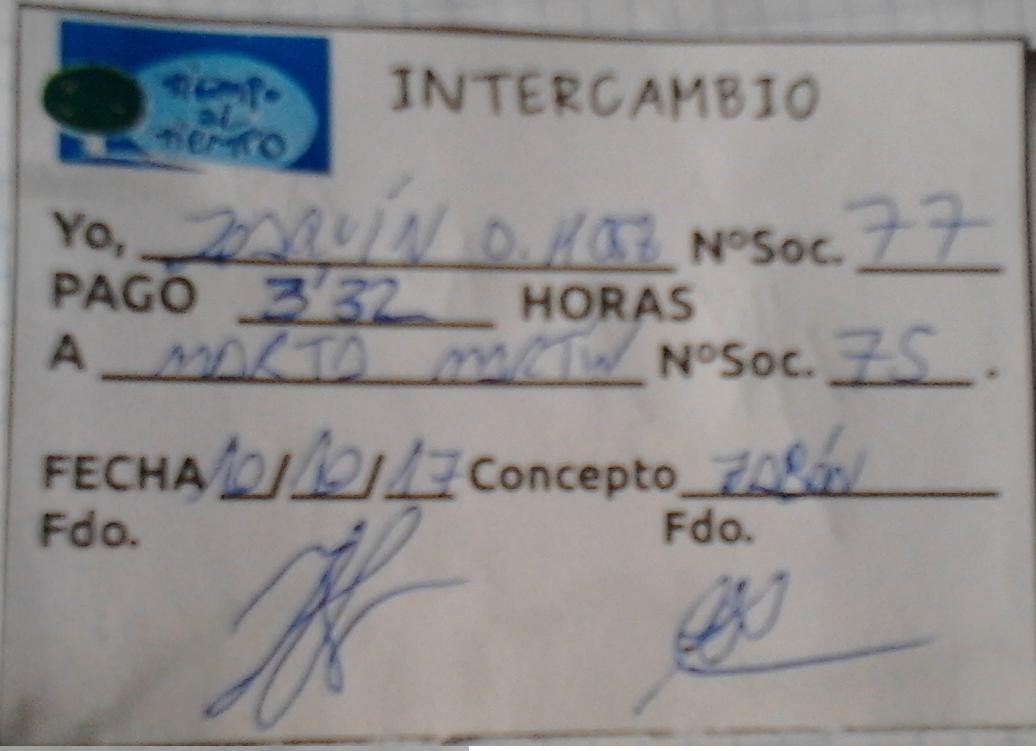 tiempo
al
tiempo
INTERCAMBIO
Yo, JOAQUÍN O. NºSoc. 77
PAGO 3'32 HORAS
A MARTA MARTIN NºSoc. 75.
FECHA 10/10/17 Concepto JABÓN
Fdo. Fdo.